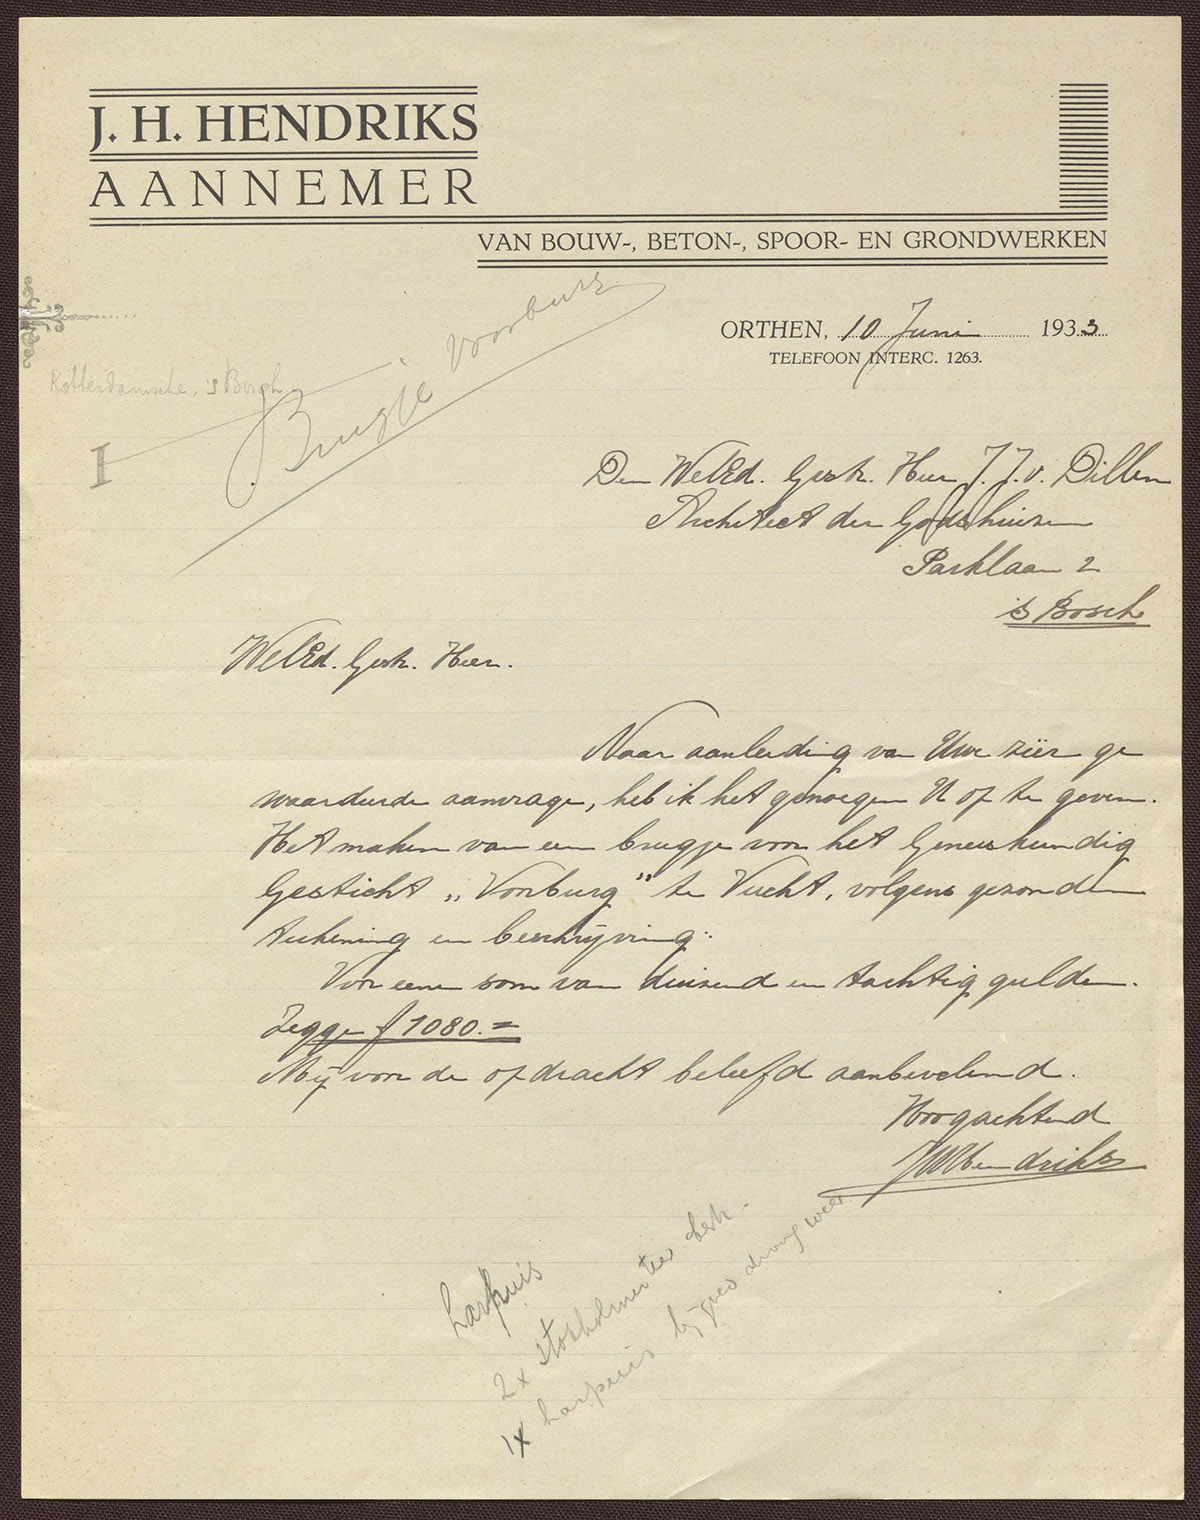 J. H. HENDRIKS
AANNEMER
VAN BOUW-, BETON-, SPOOR- EN GRONDWERKEN
ORTHEN, 10 Juni 1933
TELEFOON INTERC. 1263.
Rotterdamsche, 's Bosch
I
Brugje Voorburg
Den WelEd. Gestr. Heer J. J. v. Dillen
Architect der Godshuizen
Parklaan 2
's Bosch
WelEd. Gestr. Heer.
Naar aanleiding van Uwe zéér ge
waardeerde aanvrage, heb ik het genoegen U op te geven.
Het maken van een brugje voor het Geneeskundig
Gesticht „Voorburg” te Vucht, volgens gezonden
teekening en beschrijving:
Voor eene som van duizend en tachtig gulden.
Zegge f 1080.=
Mij voor de opdracht beleefd aanbevelend.
Hoogachtend
JHHendriks
harpuis
2x Stokholmerteer
1x harpuis bij droog weer